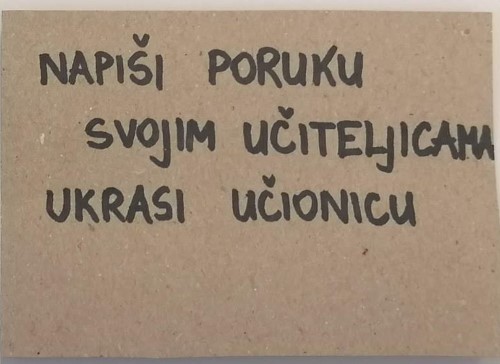 NAPIŠI PORUKU
SVOJIM UČITELJICAMA
UKRASI UČIONICU